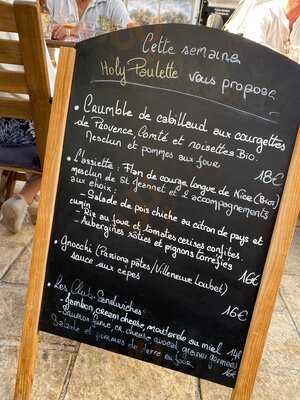 Cette semaine
Holy Paulette vous propose
• Crumble de cabillaud aux courgettes
de Provence, Comté et noisettes Bio.
Mesclun et pommes au four 18€
• l'assiette : Flan de courge longue de Nice (Bio)
mesclun de St Jeannet et 2 accompagnements
aux choix :
- Salade de pois chiche au citron de pays et
cumin
- Riz au four et tomates cerises confites.
- Aubergines rôties et pignons torréfiés
16€
• Gnocchi (Pasiona pâtes/Villeneuve Loubet)
sauce aux cèpes 16€
• Les Club Sandwiches
- Jambon, cream cheese, moutarde au miel 14€
- Saumon fumé, cream cheese, avocat, graines germées
Salade et pommes de terre au four 16€